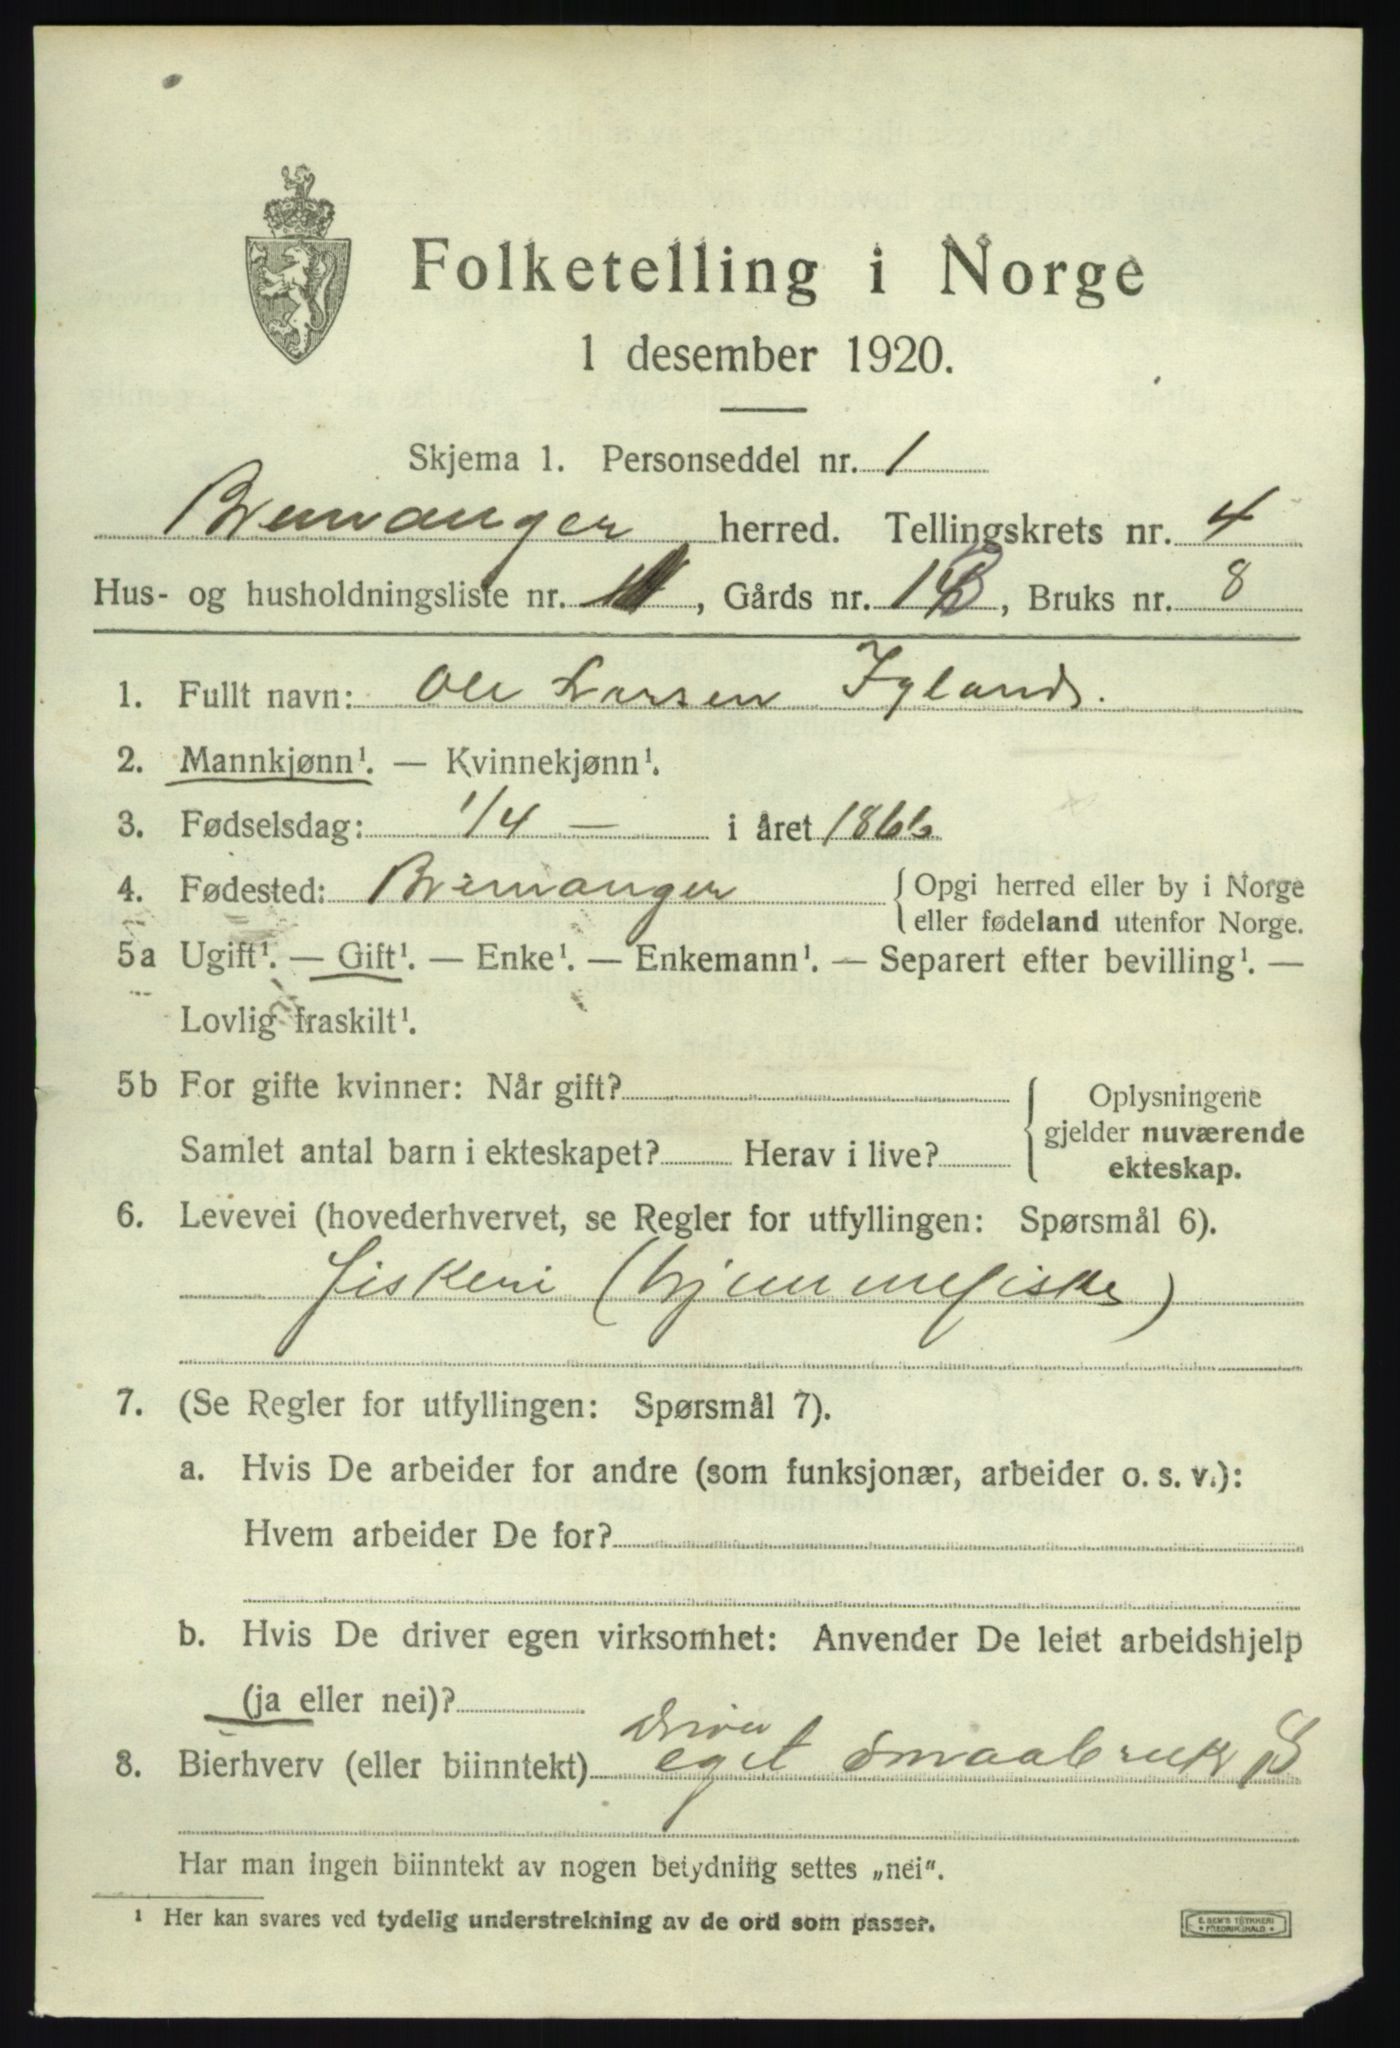 Folketelling i Norge
1 desember 1920.
Skjema 1. Personseddel nr. 1
Bremanger herred. Tellingskrets nr. 4
Hus- og husholdningsliste nr. , Gårds nr. , Bruks nr. 8
1. Fullt navn: Ole Larsen Igland.
2. Mannkjønn¹. — Kvinnekjønn¹.
3. Fødselsdag: 1/4 — i året 1866
4. Fødested: Bremanger { Opgi herred eller by i Norge
eller fødeland utenfor Norge.
5a Ugift¹. — Gift¹. — Enke¹. — Enkemann¹. — Separert efter bevilling¹. —
Lovlig fraskilt¹.
5b For gifte kvinner: Når gift? { Oplysningene
gjelder nuværende
Samlet antal barn i ekteskapet? Herav i live?
ekteskap.
6. Levevei (hovederhvervet, se Regler for utfyllingen: Spørsmål 6).
fiskeri (hjemmefiske)
7. (Se Regler for utfyllingen: Spørsmål 7).
a. Hvis De arbeider for andre (som funksjonær, arbeider o. s. v.):
Hvem arbeider De for?
b. Hvis De driver egen virksomhet: Anvender De leiet arbeidshjelp
(ja eller nei)?
driver
8. Bierhverv (eller biinntekt) eget smaabruk S
Har man ingen biinntekt av nogen betydning settes „nei“.
¹ Her kan svares ved tydelig understrekning av de ord som passer.
E. SEM'S TRYKKERI
* FREDRIKSHALD *